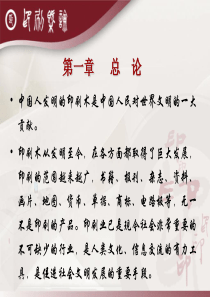 印刷概论
第一章 总 论
• 中国人发明的印刷术是中国人民对世界文明的一大
贡献。
• 印刷术从发明至今，在各方面都取得了巨大发展，
印刷的范围越来越广，书籍、报刊、杂志、资料、
画片、地图、货币、车票、商标、电路板等，无一
不是印刷的产品。印刷业已是现今社会非常重要的
不可缺少的行业，是人类文化、信息交流的有力工
具，是促进社会文明发展的重要手段。